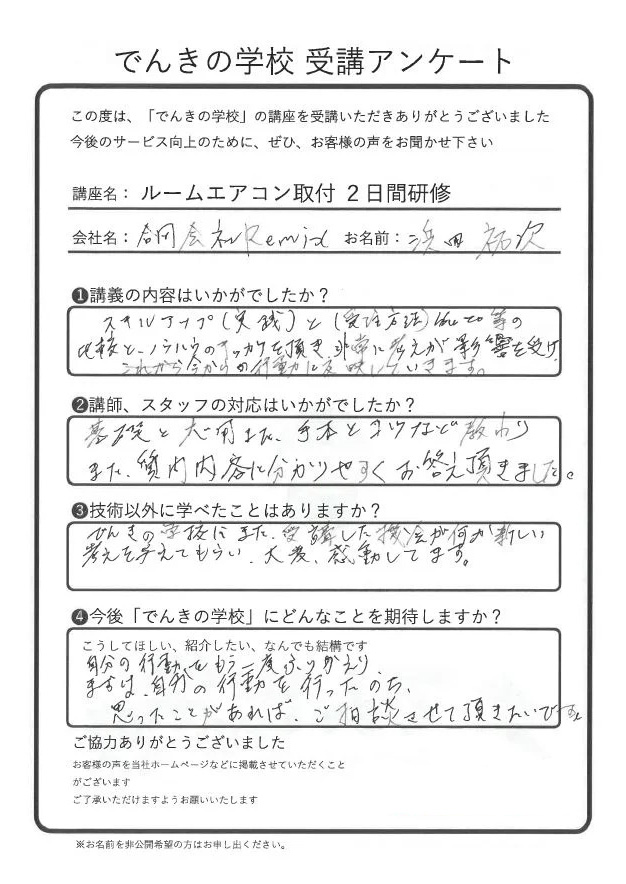 でんきの学校 受講アンケート
この度は、「でんきの学校」の講座を受講いただきありがとうございました
今後のサービス向上のために、ぜひ、お客様の声をお聞かせ下さい
講座名： ルームエアコン取付 ２日間研修
会社名： 合同会社Remix お名前： 浜田 祐次
❶講義の内容はいかがでしたか？
スキルアップ(実践)と(受注方法) 等の
比較と、ノウハウのキッカケを頂き、非常に考えが影響を受け
これから今からの行動に反映していきます。
❷講師、スタッフの対応はいかがでしたか？
基礎と 手本とコツなど教わり
また、質問内容に分かりやすくお答え頂きました。
❸技術以外に学べたことはありますか？
でんきの学校にまた、受講した機会が何か新しい
考えを与えてもらい、大変、感動してます。
❹今後「でんきの学校」にどんなことを期待しますか？
こうしてほしい、紹介したい、なんでも結構です
自分の行動をもう一度ふりかえり、
まずは、自分の行動を行ったのち、
思ったことがあれば、ご相談させて頂きたいです。
ご協力ありがとうございました
お客様の声を当社ホームページなどに掲載させていただくこと
がございます
ご了承いただけますようお願いいたします
※お名前を非公開希望の方はお申し出ください。